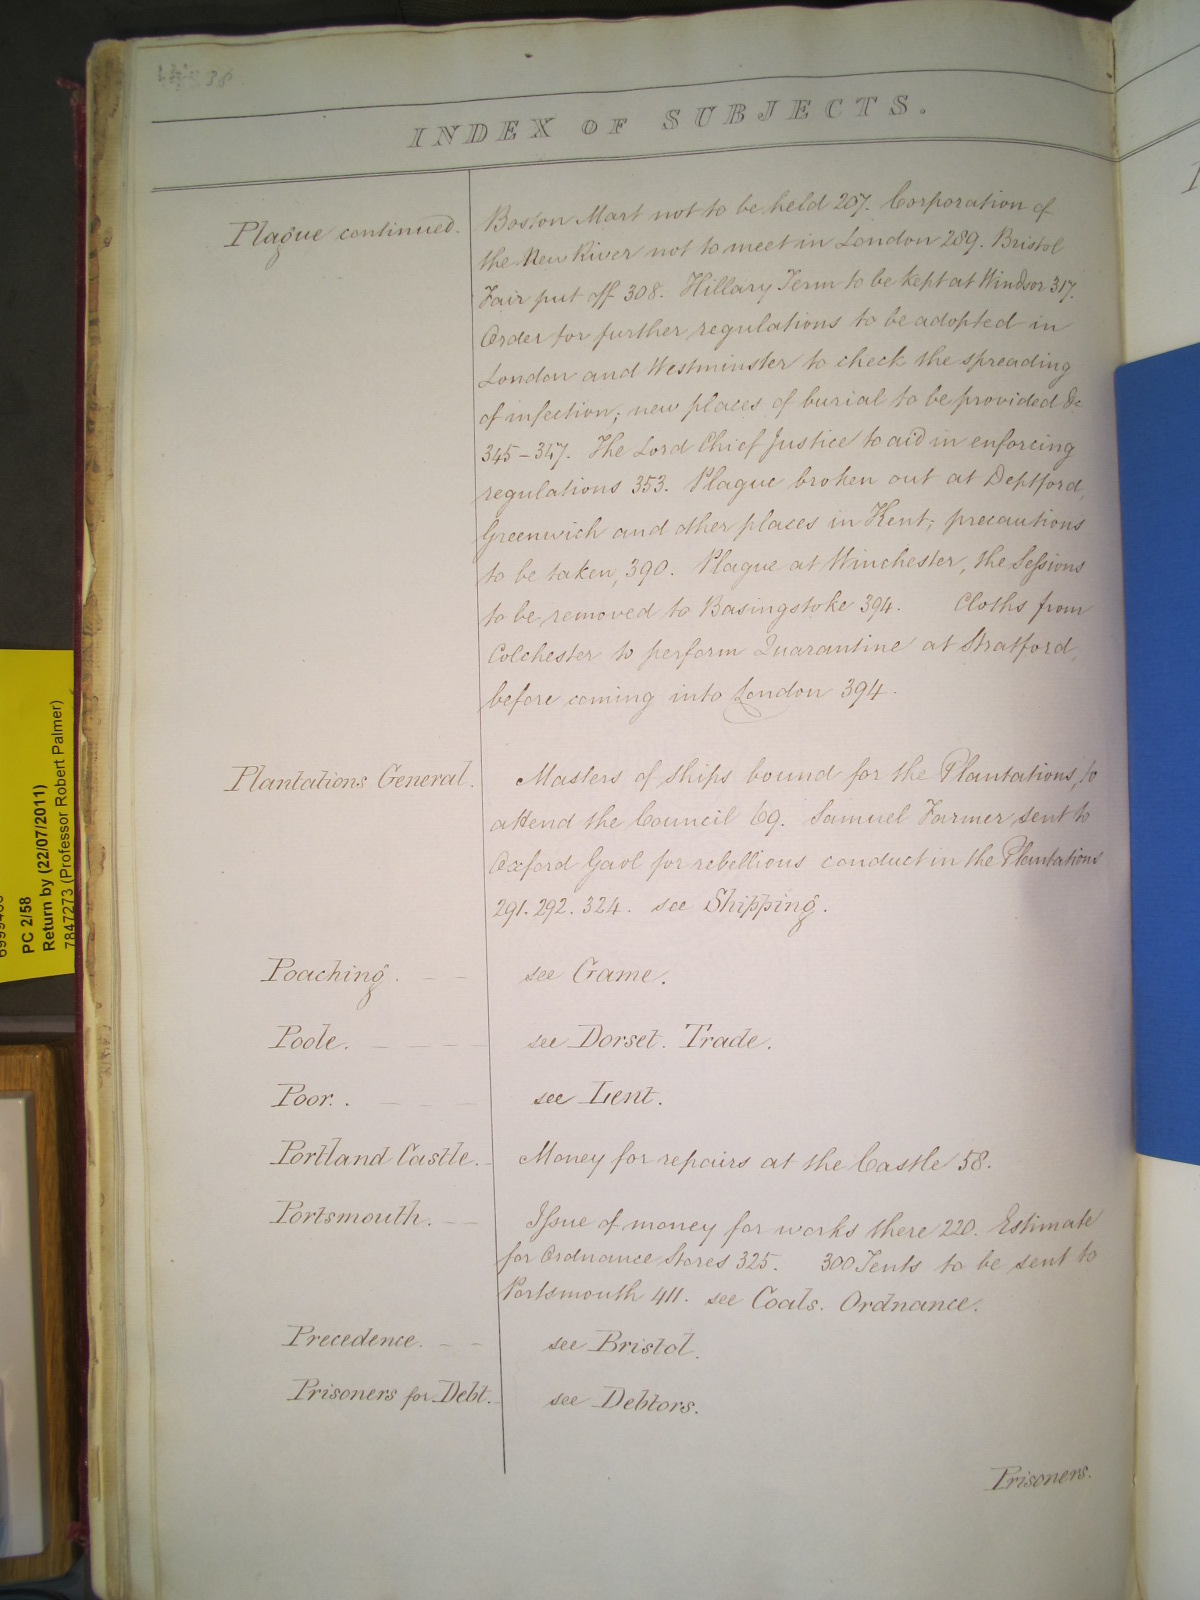 38
INDEX OF SUBJECTS.
Plague continued.
Boston Mart not to be held 207. Corporation of
the New River not to meet in London 289. Bristol
Fair put off 308. Hillary Term to be kept at Windsor 317.
Order for further regulations to be adopted in
London and Westminster to check the spreading
of infection; new places of burial to be provided &c
345-347. The Lord Chief Justice to aid in enforcing
regulations 353. Plague broken out at Deptford,
Greenwich and other places in Kent; precautions
to be taken, 390. Plague at Winchester, the Sessions
to be removed to Basingstoke 394. Cloths from
Colchester to perform Quarantine at Stratford,
before coming into London 394.
Plantations General.
Masters of ships bound for the Plantations, to
attend the Council 69. Samuel Farmer sent to
Oxford Gaol for rebellious conduct in the Plantations
291. 292. 324. see Shipping.
Poaching. see Game.
Poole. see Dorset. Trade.
Poor. see Lent.
Portland Castle. Money for repairs at the Castle 58.
Portsmouth. Issue of money for works there 220. Estimate
for Ordnance Stores 325. 300 Tents to be sent to
Portsmouth 411. see Coals. Ordnance.
Precedence. see Bristol.
Prisoners for Debt. see Debtors.
Prisoners.
PC 2/58
Return by (22/07/2011)
7847273 (Professor Robert Palmer)